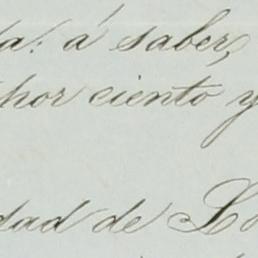 da: á saber,
por ciento y
dad de Lo